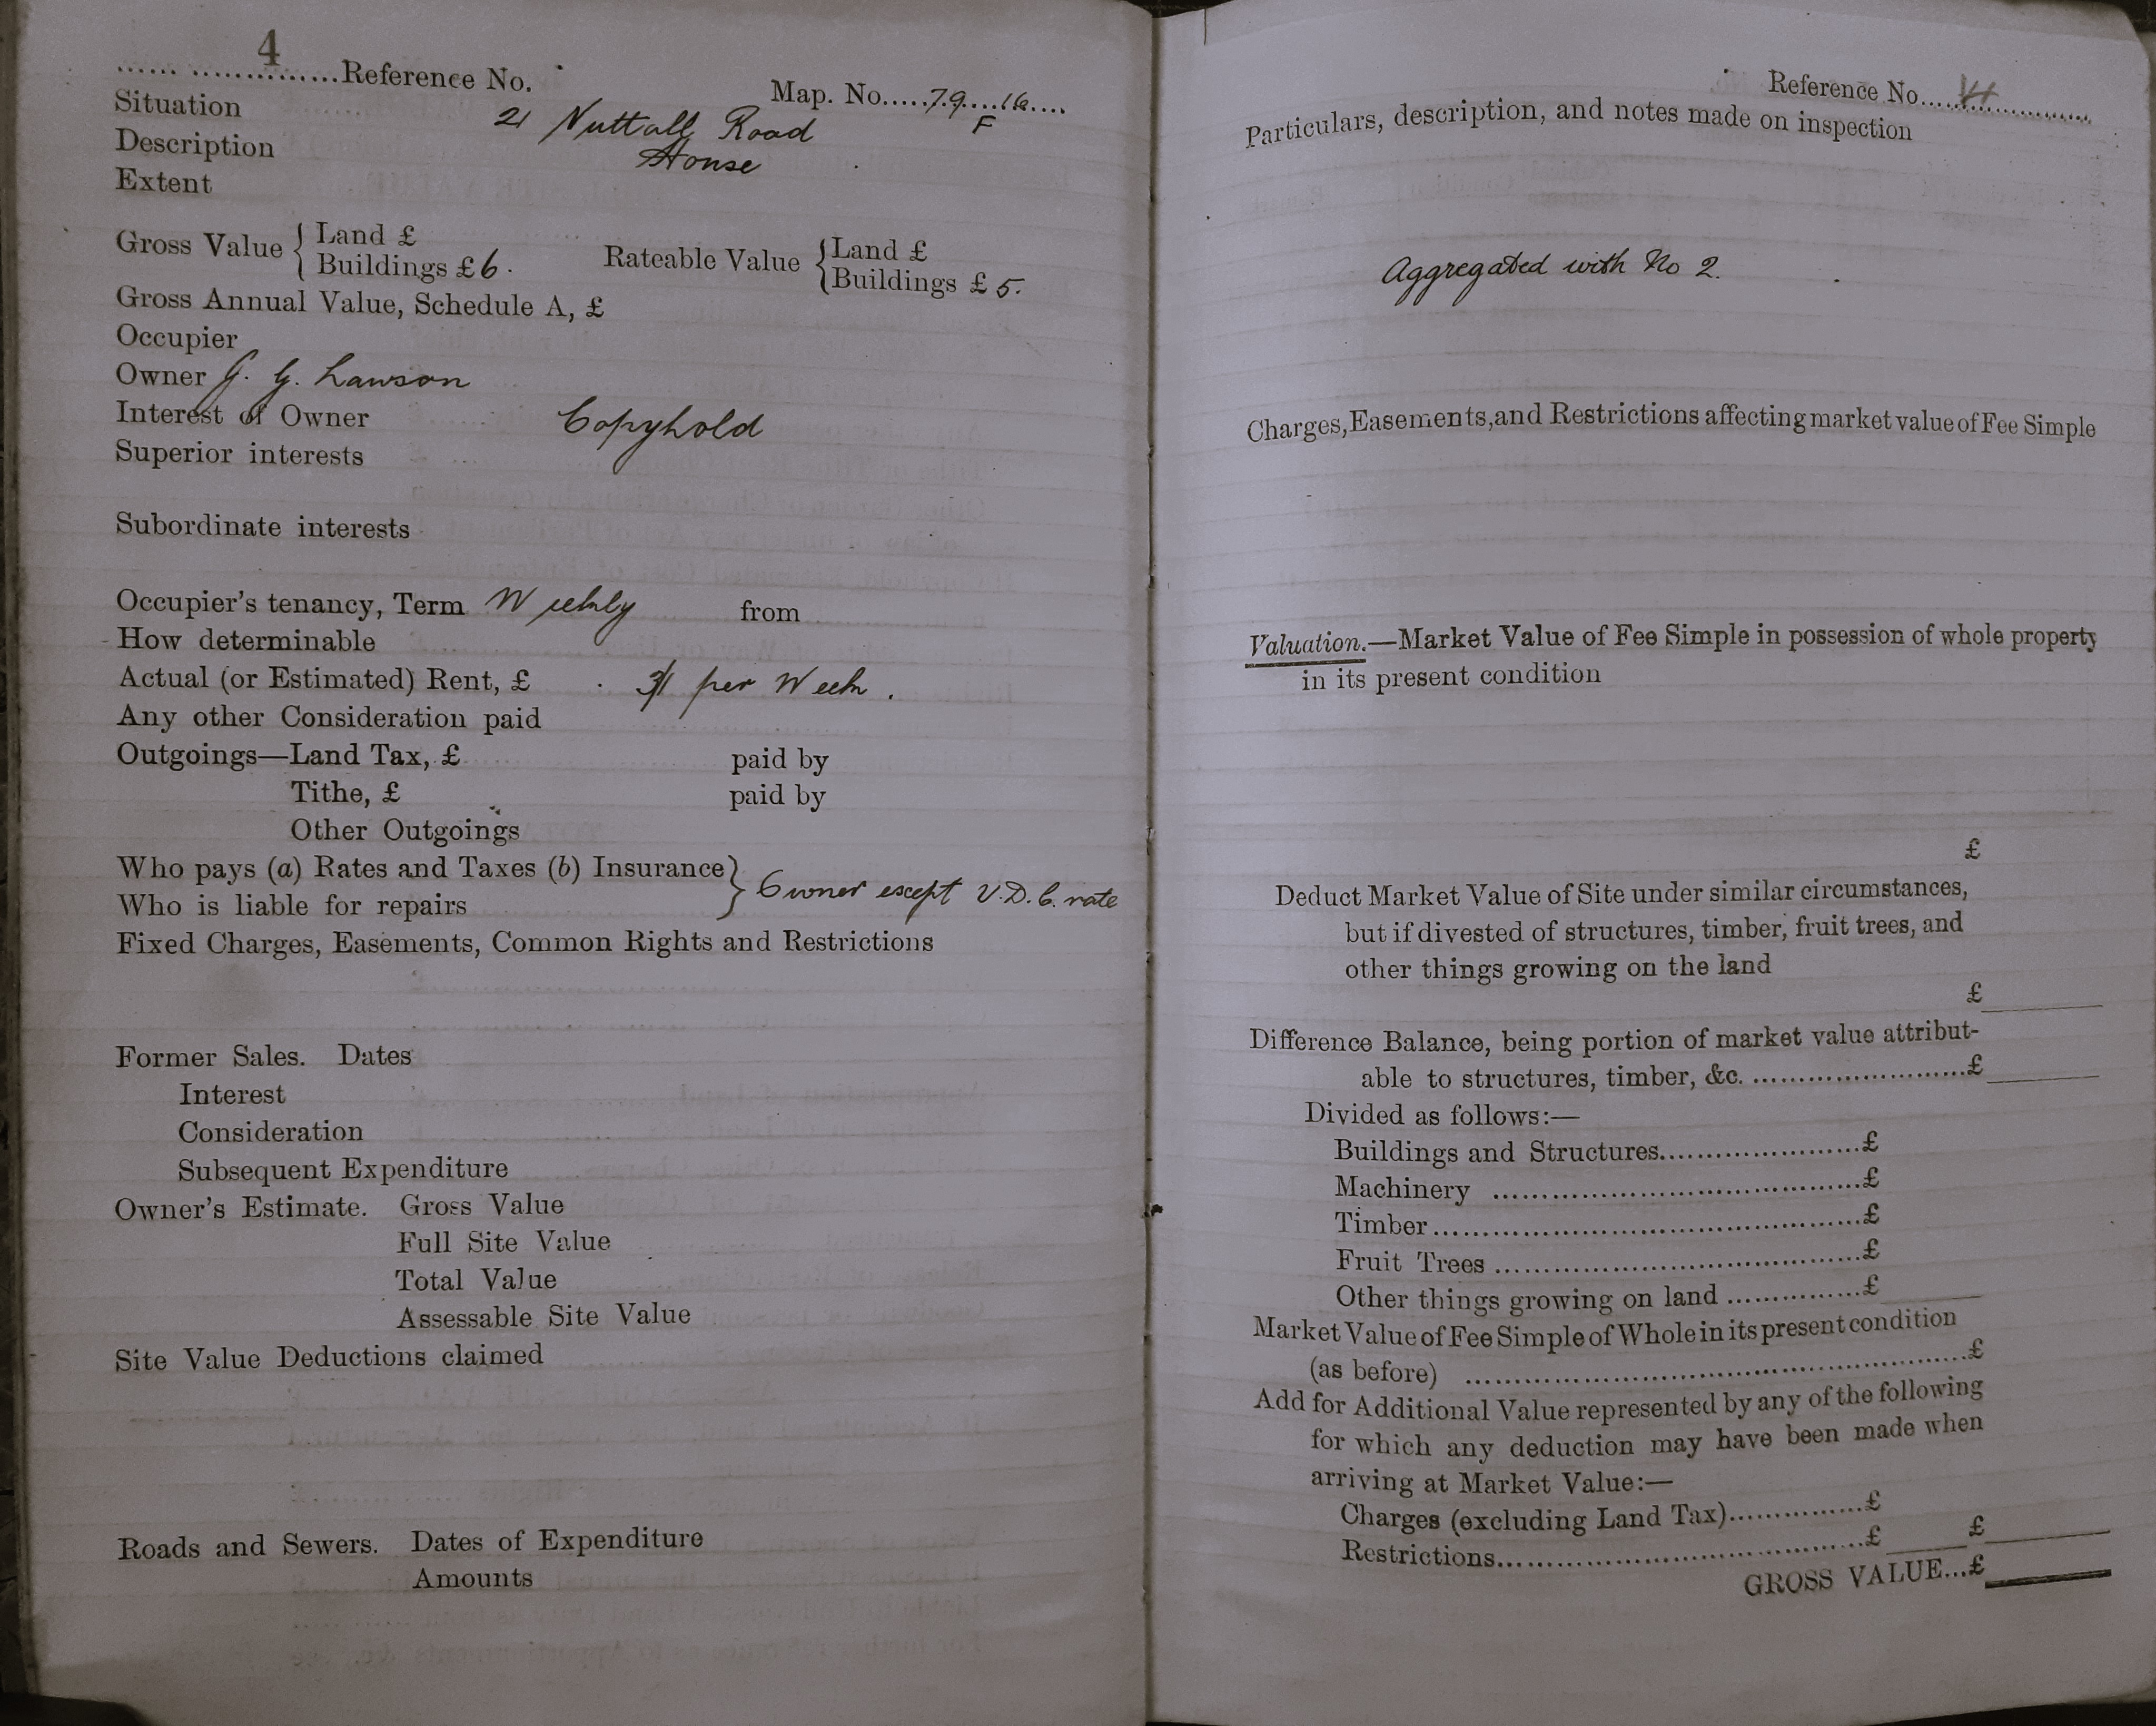 4
...... ..............Reference No.
Map. No.....79....16....
F
Situation 21 Nuttall Road
Description House
Extent
Gross Value { Land £
Buildings £6.
Rateable Value { Land £
Buildings £5.
Gross Annual Value, Schedule A, £
Occupier
Owner J. G. Lawson
Interest of Owner Copyhold
Superior interests
Subordinate interests
Occupier's tenancy, Term Weekly from
How determinable
Actual (or Estimated) Rent, £ 3/ per Week.
Any other Consideration paid
Outgoings—Land Tax, £ paid by
Tithe, £ paid by
Other Outgoings
Who pays (a) Rates and Taxes (b) Insurance }
Who is liable for repairs } Owner except U.D.C. rate
Fixed Charges, Easements, Common Rights and Restrictions
Former Sales. Dates
Interest
Consideration
Subsequent Expenditure
Owner's Estimate. Gross Value
Full Site Value
Total Value
Assessable Site Value
Site Value Deductions claimed
Roads and Sewers. Dates of Expenditure
Amounts
Reference No....................
Particulars, description, and notes made on inspection
Aggregated with No 2.
Charges, Easements, and Restrictions affecting market value of Fee Simple
Valuation.—Market Value of Fee Simple in possession of whole property
in its present condition
£
Deduct Market Value of Site under similar circumstances,
but if divested of structures, timber, fruit trees, and
other things growing on the land
£
Difference Balance, being portion of market value attribut-
able to structures, timber, &c. ........................£
Divided as follows:—
Buildings and Structures......................£
Machinery .....................................£
Timber...........................................£
Fruit Trees .....................................£
Other things growing on land ...............£
Market Value of Fee Simple of Whole in its present condition
(as before) ...................................................£
Add for Additional Value represented by any of the following
for which any deduction may have been made when
arriving at Market Value:—
Charges (excluding Land Tax)...............£
Restrictions.......................................£ £
GROSS VALUE...£